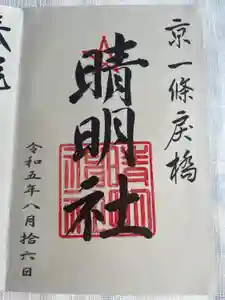 京一條戻橋
晴明社
令和五年八月拾六日